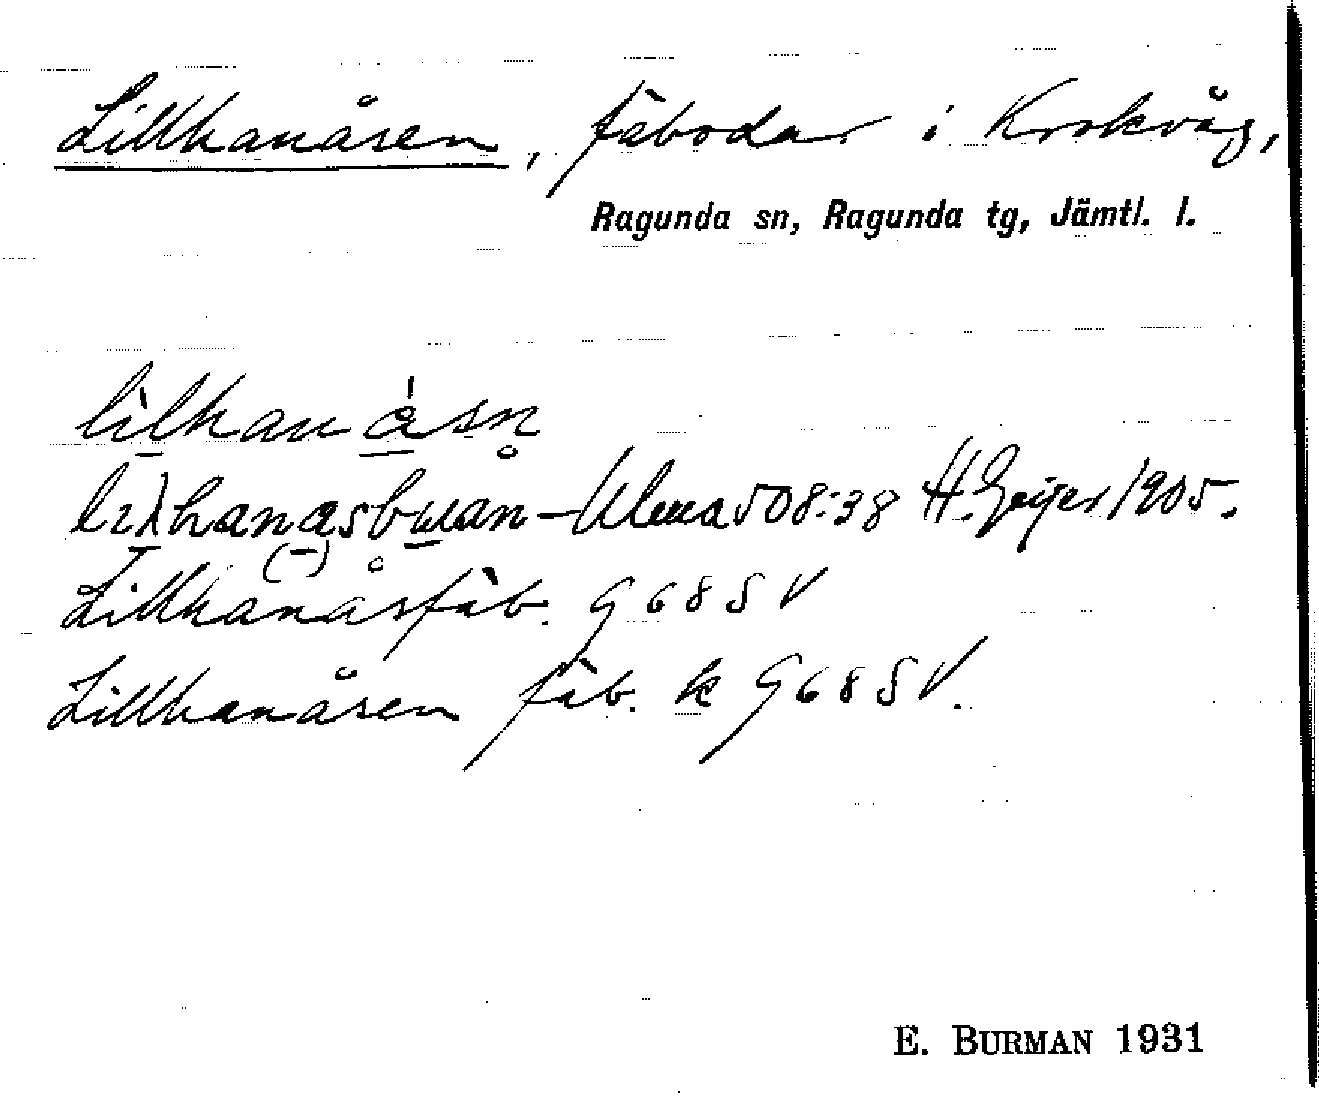 Lillhanåsen, fäbodar i Krokvåg,
Ragunda sn, Ragunda tg, Jämtl. l.
lilhanåsn
liλhanasbuan – Ulma 508:38 H. Geijer 1905.
Lillhanåsfäb. G 68 S V
Lillhanåsen fäb. k G 68 S V.
E. BURMAN 1931